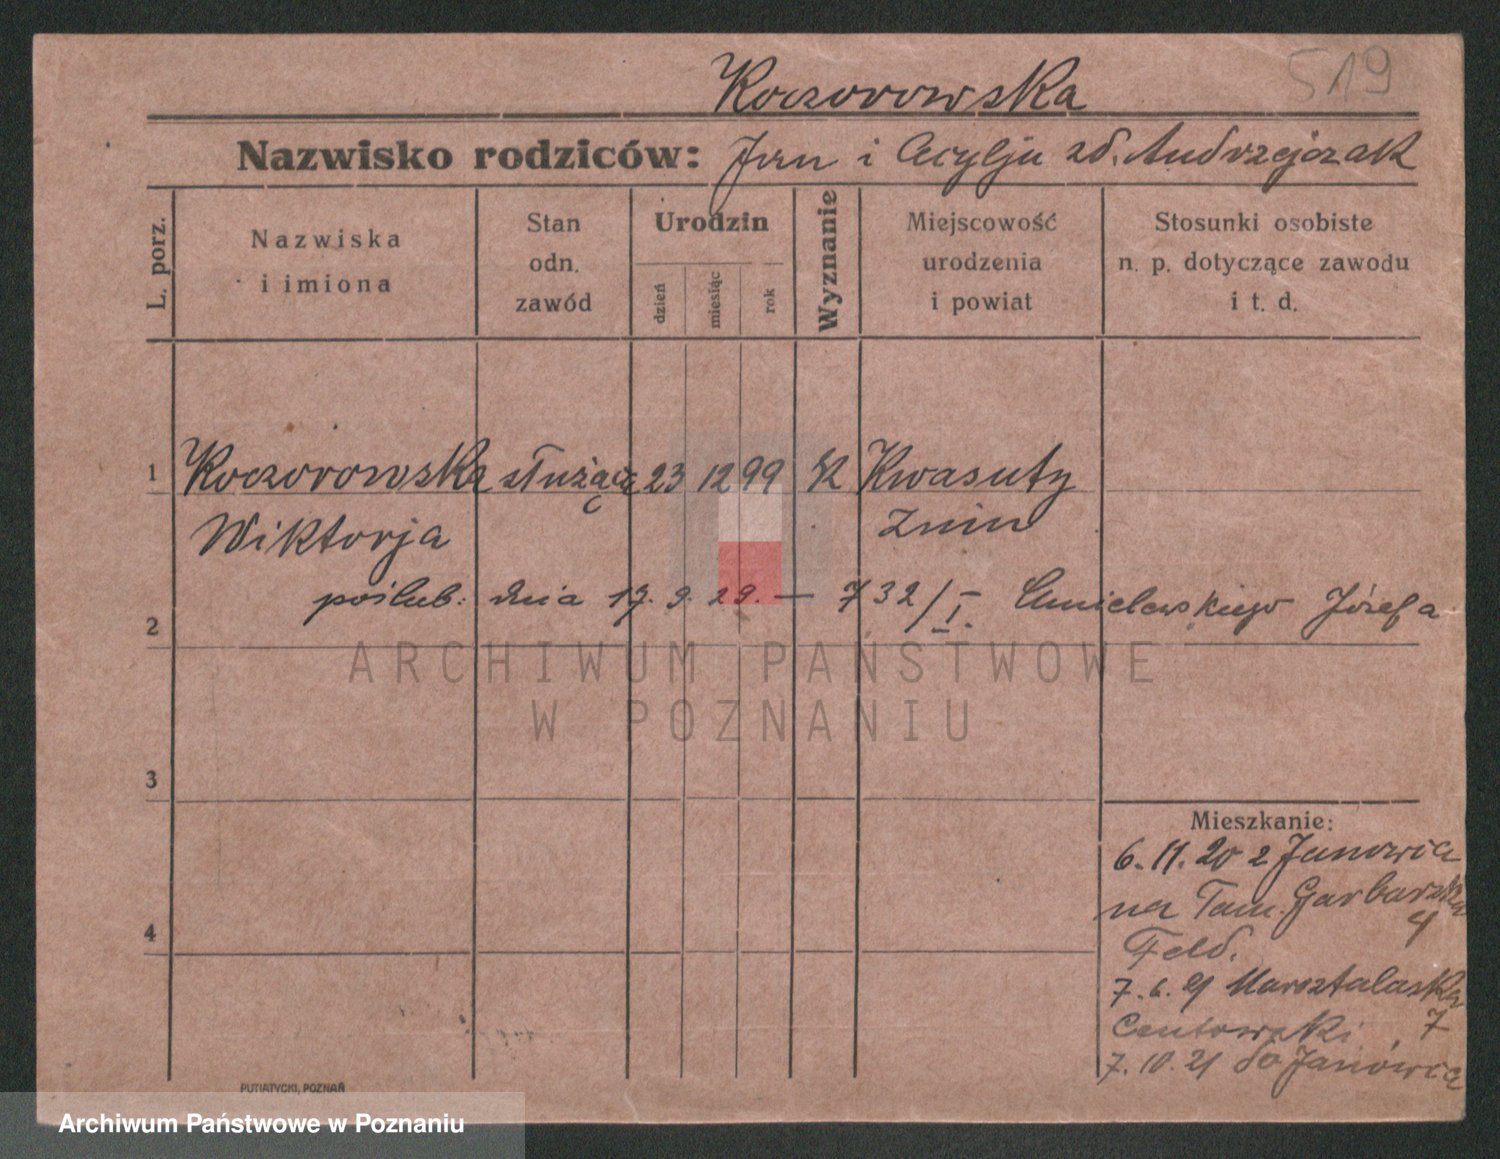 Koczorowska 519
Nazwisko rodziców: Jan i Cecylja zd. Andrzejczak
L. porz.
Nazwiska
i imiona
Stan
odn.
zawód
Urodzin
dzień
miesiąc
rok
Wyznanie
Miejscowość
urodzenia
i powiat
Stosunki osobiste
n. p. dotyczące zawodu
i t. d.
1 Koczorowska służąca 23 12 99 Kwasuty
Wiktorja Znin
poślub: dnia 17. 9. 29. — 732/I. Chmielewskiego Józefa
2
ARCHIWUM PAŃSTWOWE
W POZNANIU
3
4
Mieszkanie:
6. 11. 20 z Janowca
na Tam. Garbarska
4
Feld.
7. 6. 21 Marsztalarska
7
7. 10. 21 do Janówca
PUTIATYCKI, POZNAŃ
Archiwum Państwowe w Poznaniu